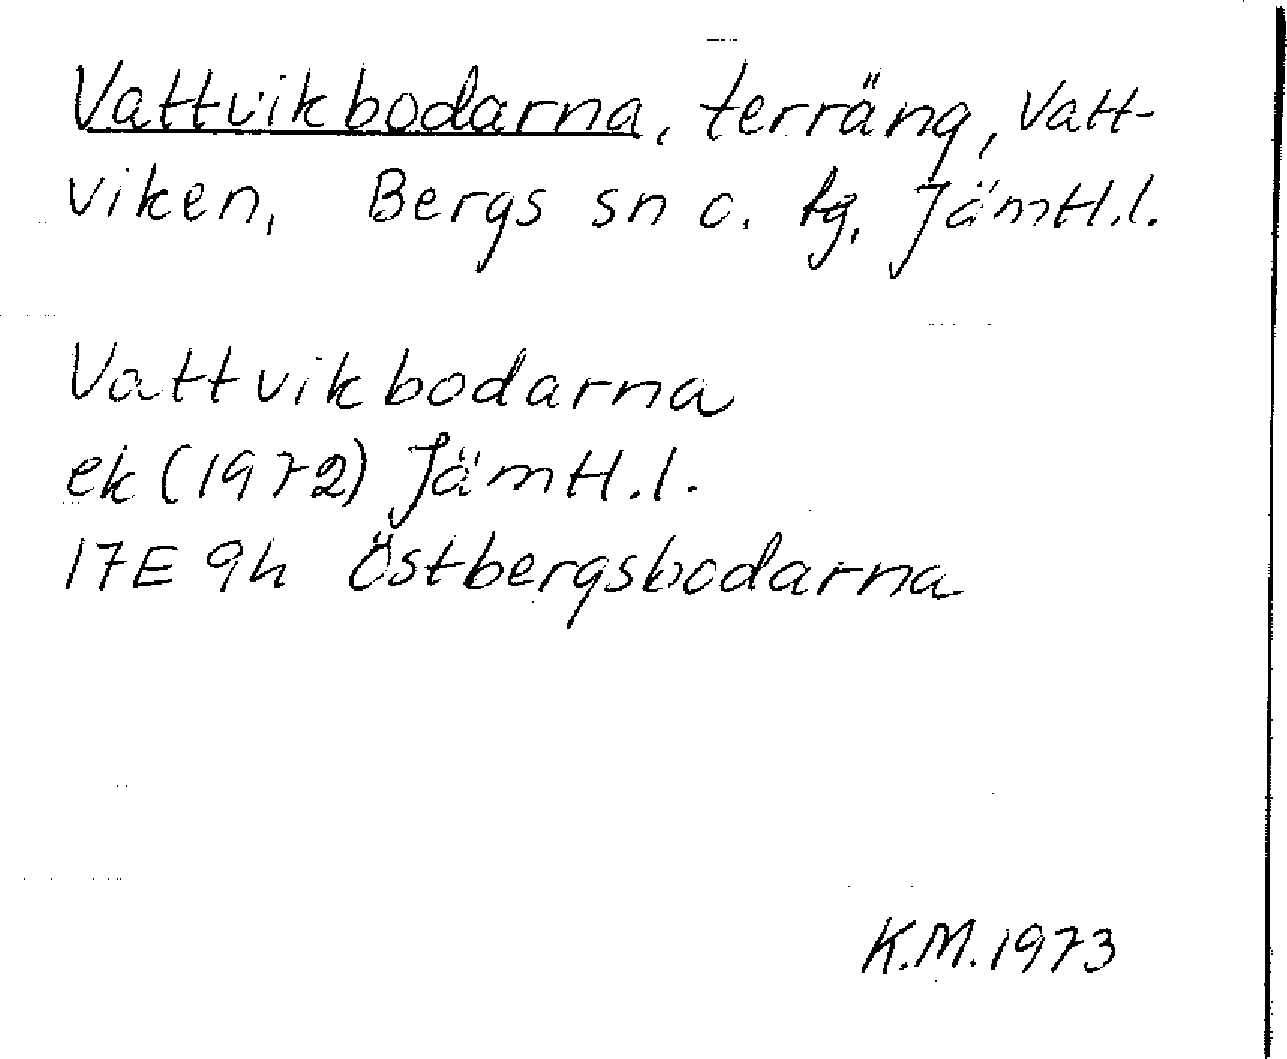 Vattvikbodarna, terräng, Vatt-
viken, Bergs sn o. tg, Jämtl.l.
Vattvikbodarna
ek (1972) Jämtl.l.
17E 9h Östbergsbodarna
K.M. 1973